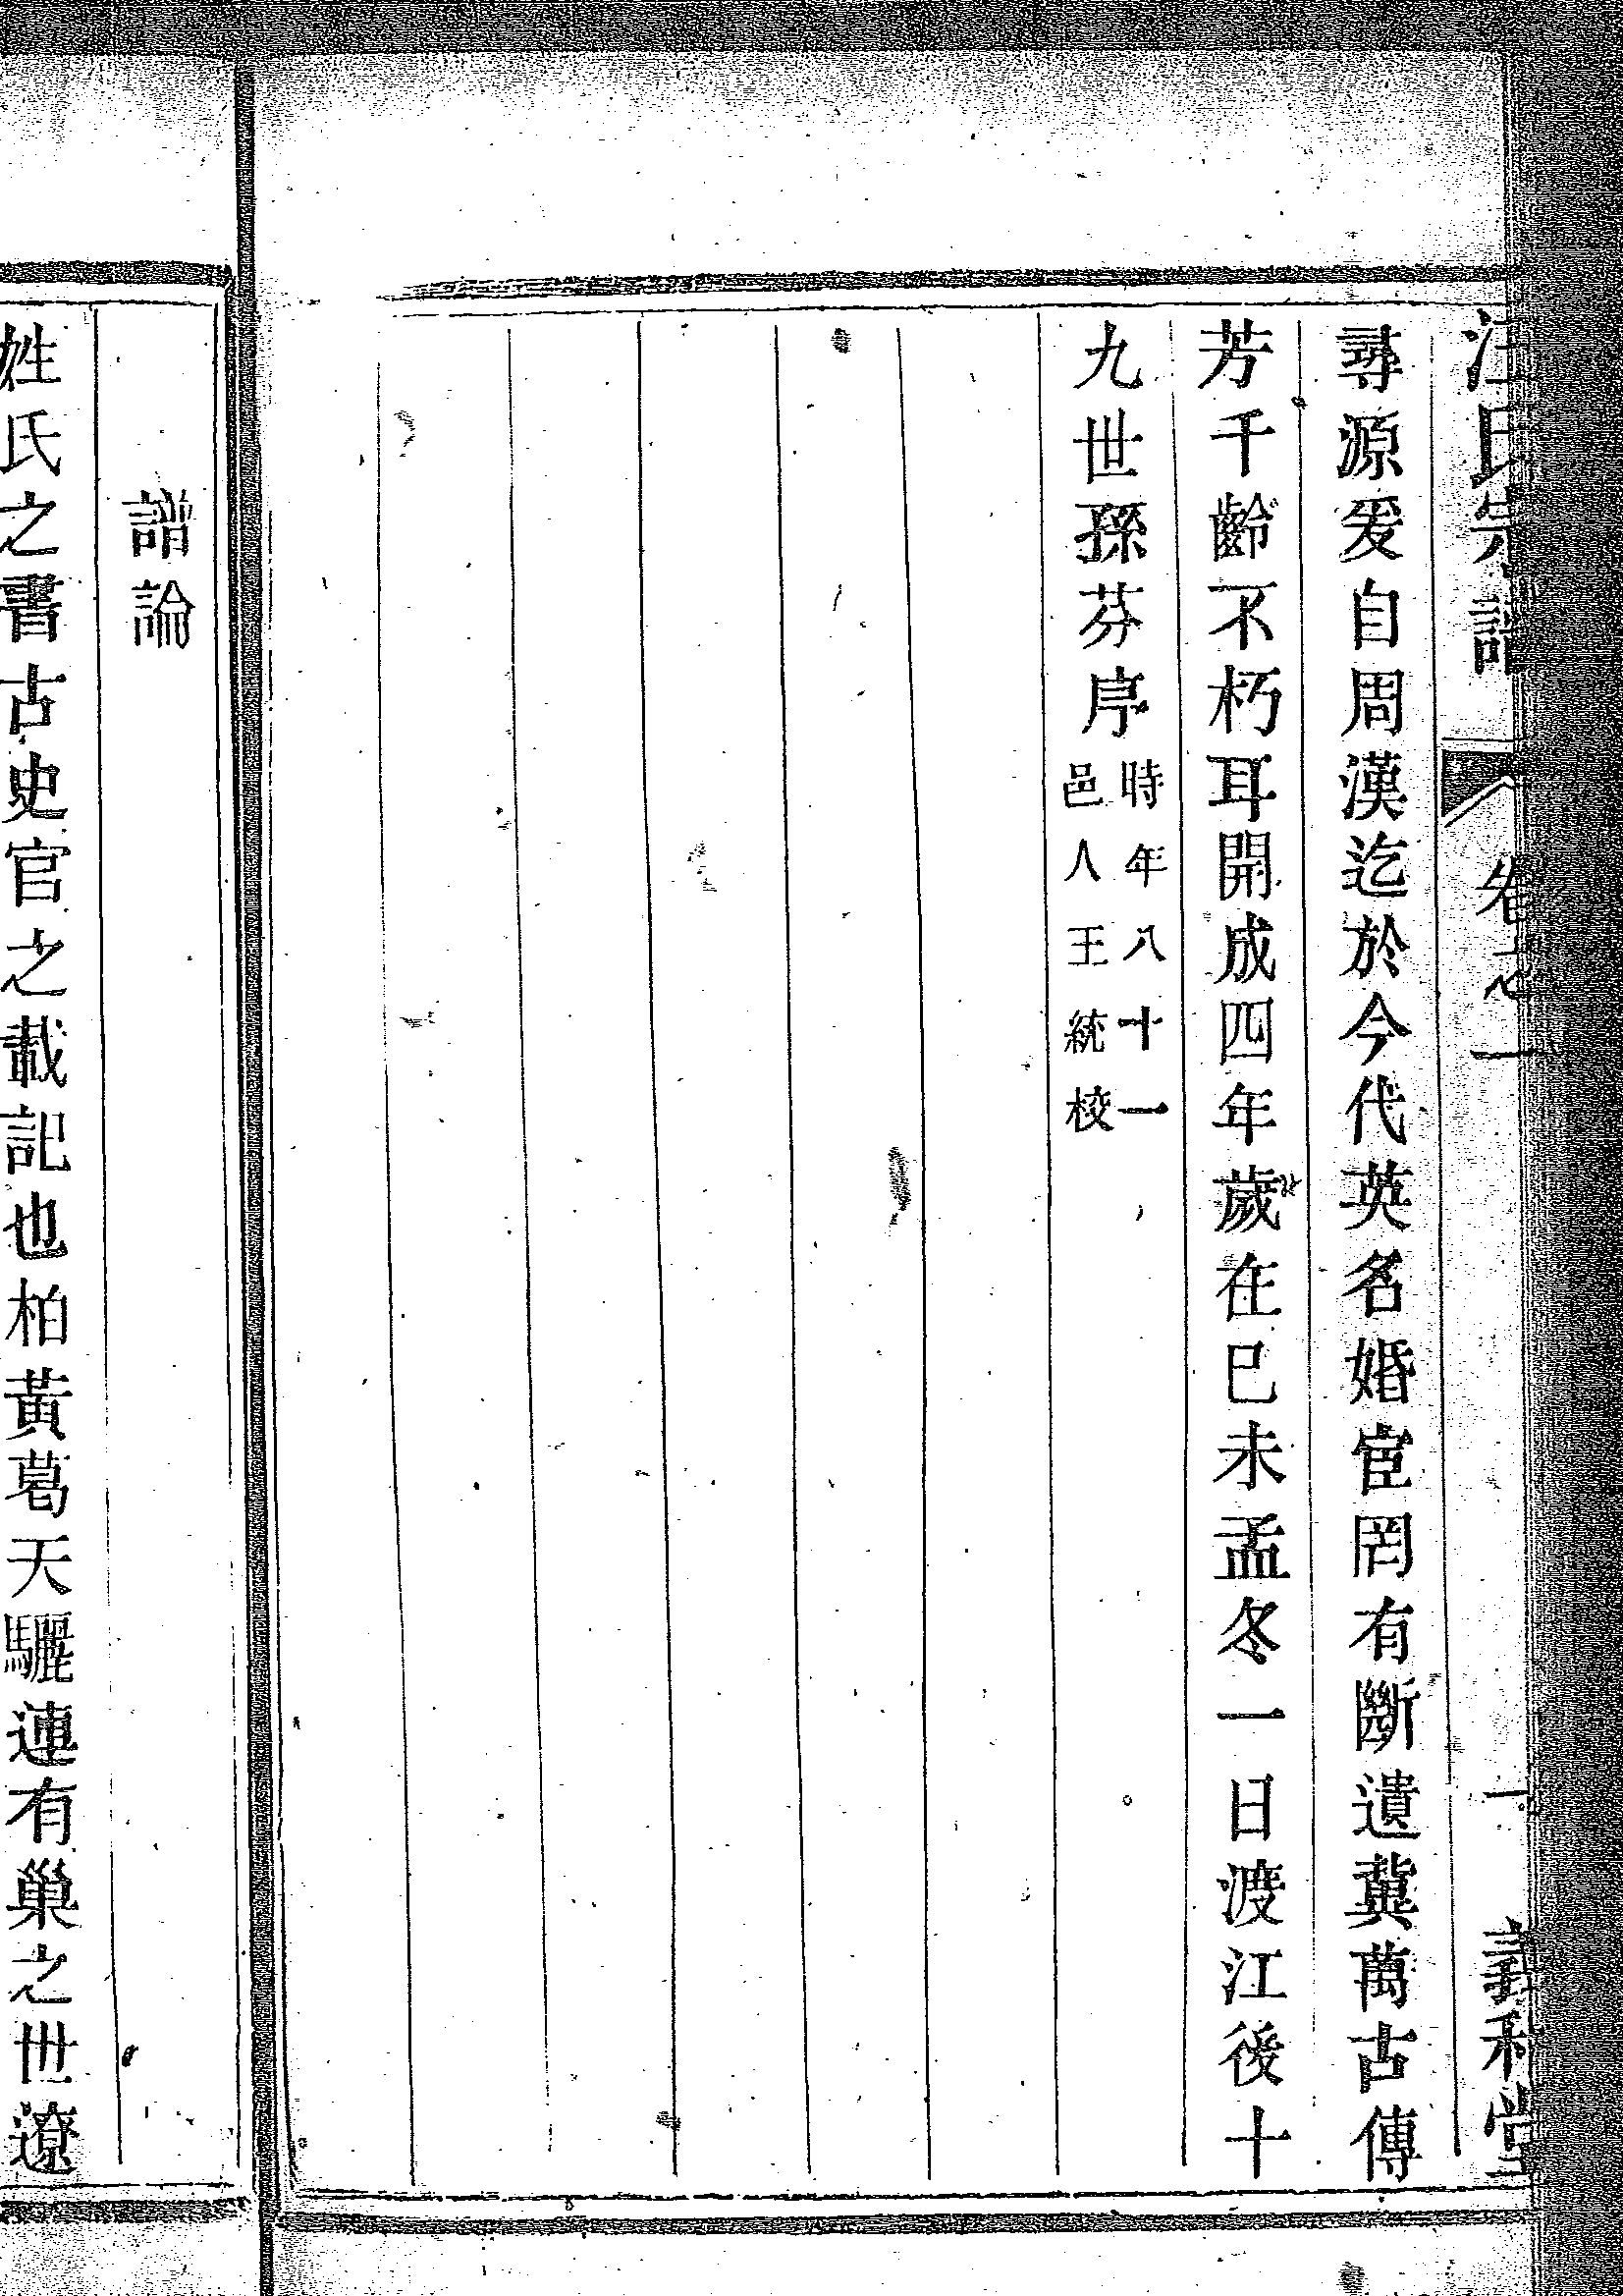 汪氏宗譜 卷之一 一 敦和堂
尋源爰自周漢迄於今代英名婚宦罔有斷遺冀萬古傳
芳千齡不朽耳開成四年歲在巳未孟冬一日渡江後十
九世孫芬序
時年八十一
邑人王統校
譜論
姓氏之書古史官之載記也柏黃葛天驪連有巢之世遼